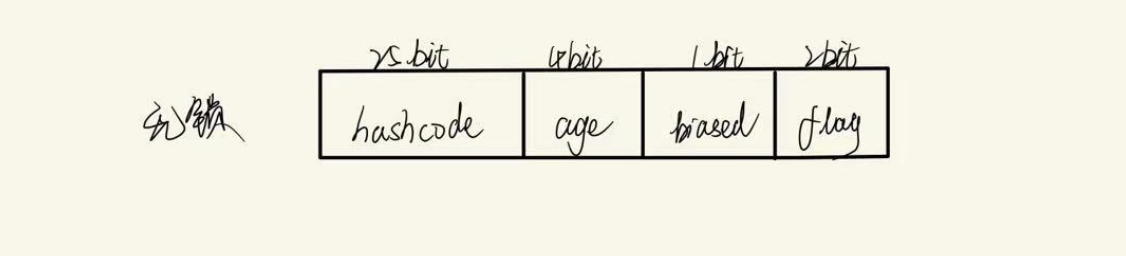 25bit 4bit 1bit 2bit
无锁 hashcode age biased flag